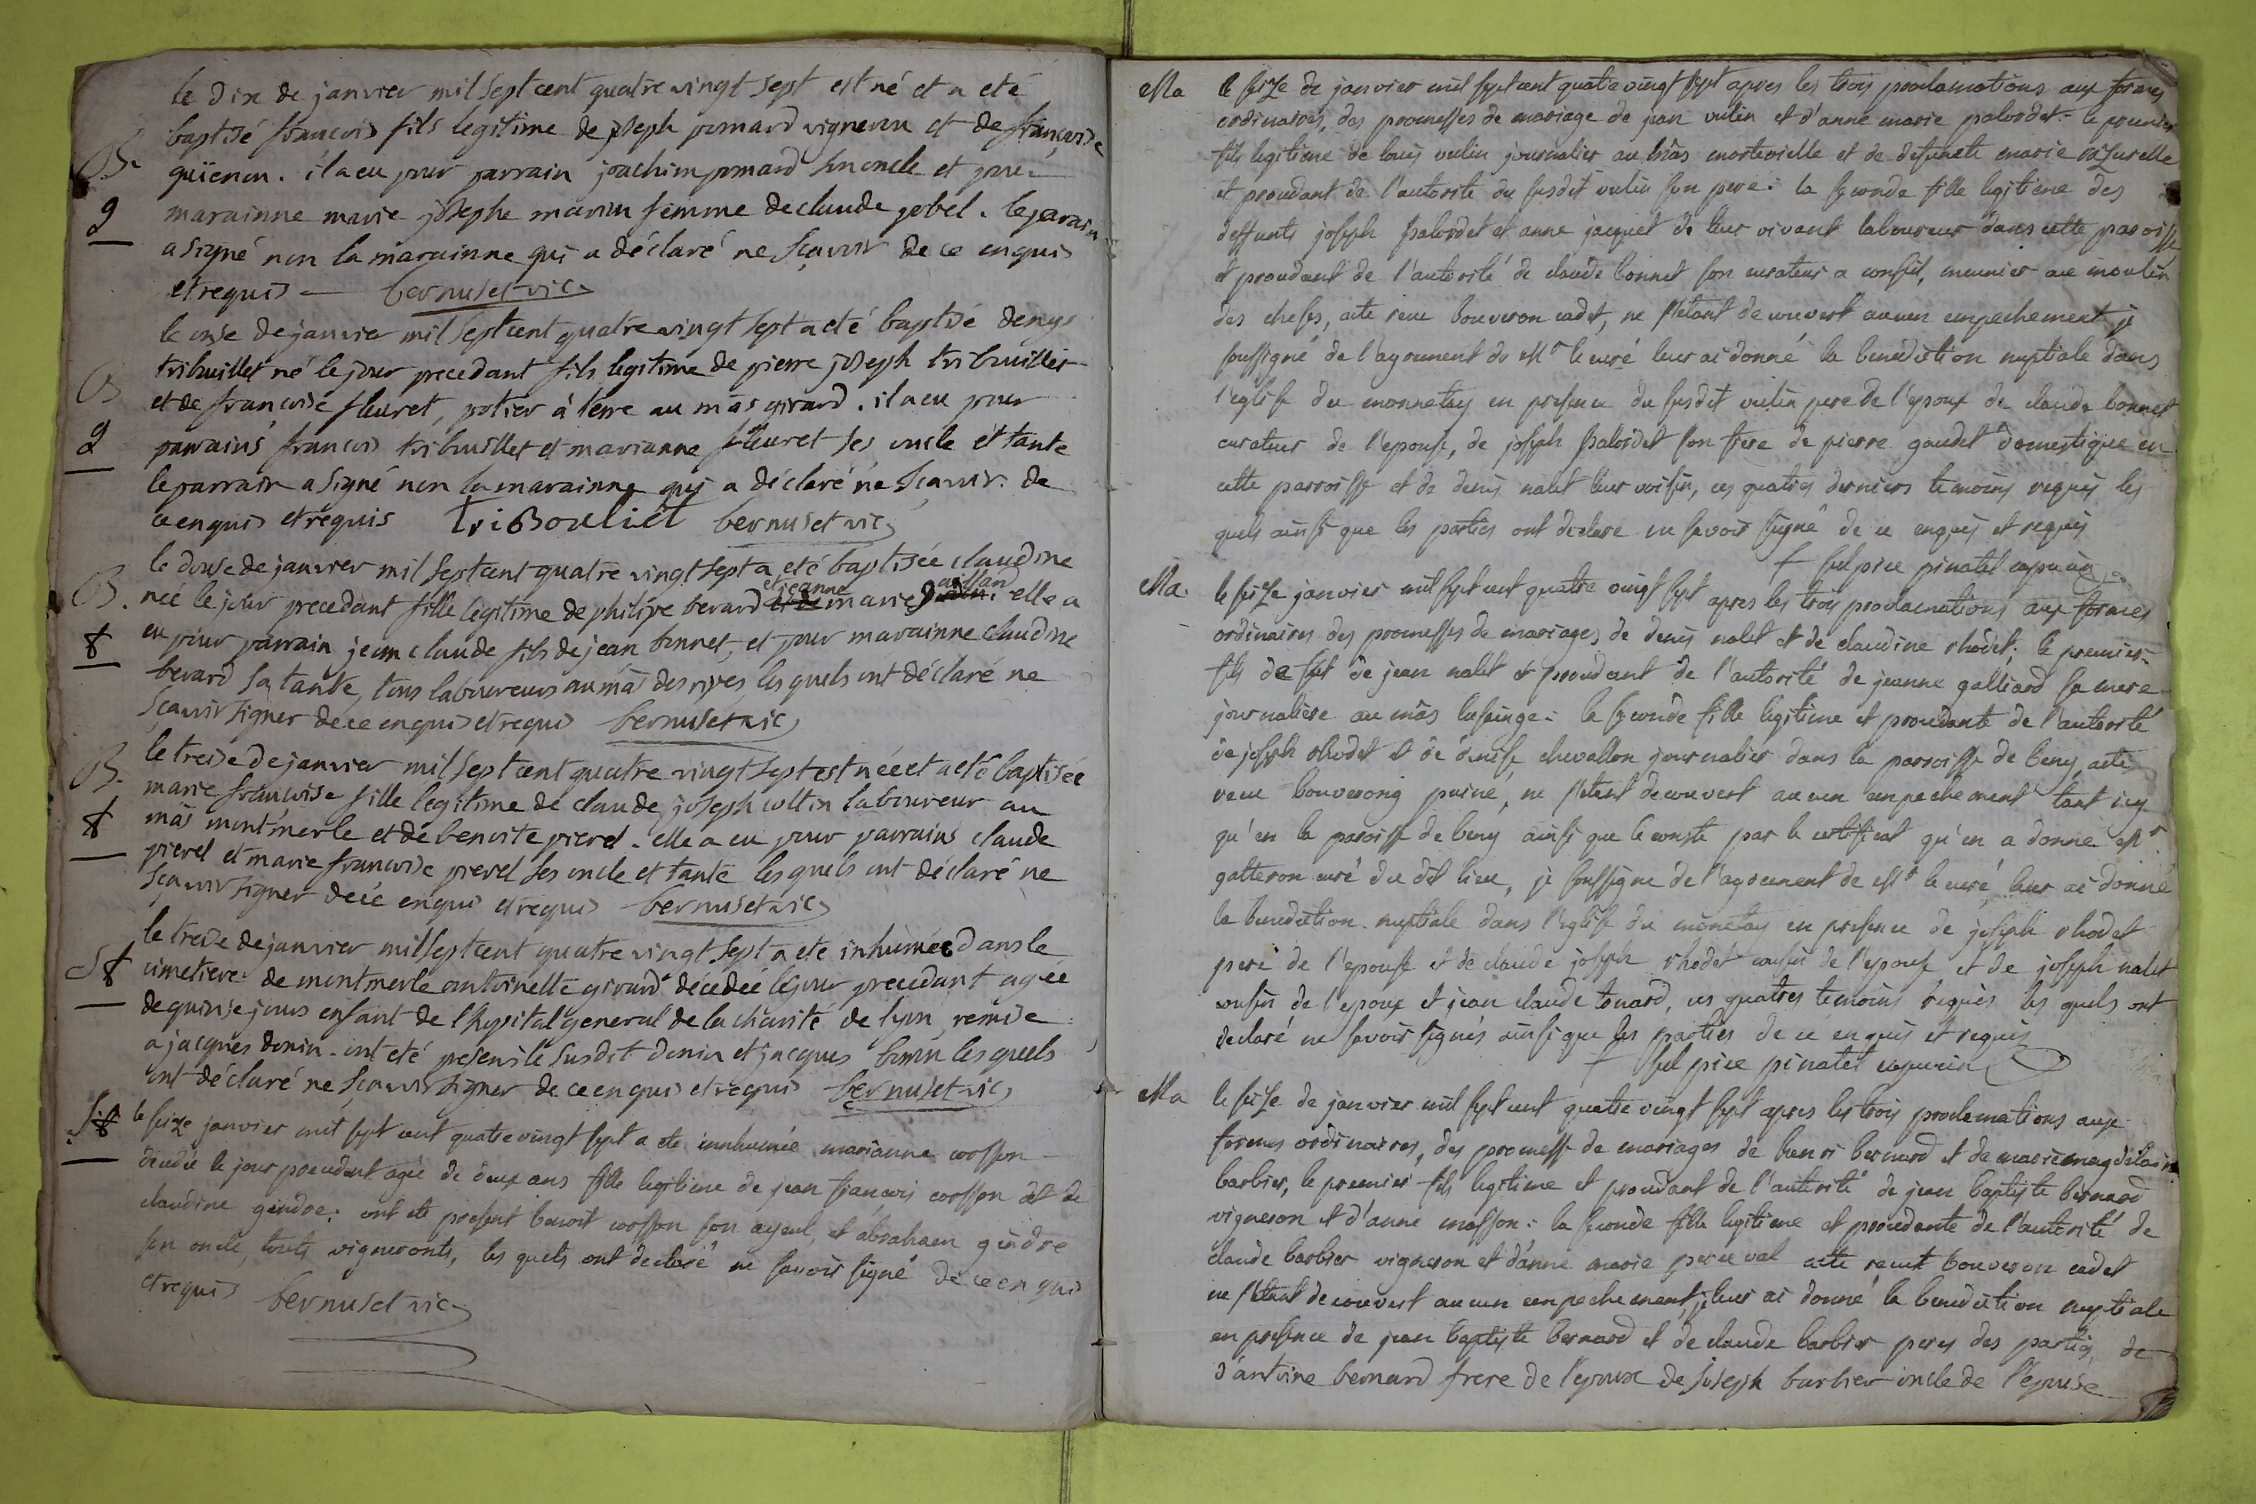 le dix de janvier mil sept cent quatre vingt sept est né et a eté
baptisé francois fils legitime de joseph pomard vigneron et de françoise
B.
guienon. il a eu pour parrain joachim pomard son oncle et pour
marainne marie josephe marin femme de claude gobel. le parain
g
a signé non la marainne qui a déclaré ne sçavoir de ce enquis
et requis bernuset vic
le onse de janvier mil sept cent quatre vingt sept a eté baptisé denys
tribuillet né le jour precedant fils legitime de pierre joseph tribuillet
B
et de francoise fleuret, potier à terre au mas girard. il a eu pour
g
parrains francois tribuillet et marianne fleuret ses oncle et tante
le parrain a signé non la marainne qui a déclaré ne sçavoir de
ce enquis et requis triBouliet bernuset vic
le douse de janvier mil sept cent quatre vingt sept a eté baptisée claudine
B.
née le jour precedant fille legitime de philipe berard et jeanne marie elle a
eu pour parrain jean claude fils de jean bonnet, et pour marainne claudine
f
berard sa tante, tous laboureurs au mas des rippes les quels ont déclaré ne
sçavoir signer de ce enquis et requis bernuset vic
le treise de janvier mil sept cent quatre vingt sept est née et a eté baptisée
B.
marie francoise fille legitime de claude joseph coltin laboureur au
f
mas montmerle et de benoite pierel. elle a eu pour parrains claude
pierel et marie francoise pierel ses oncle et tante les quels ont déclaré ne
sçavoir signer de ce enquis et requis bernuset vic
le treise de janvier mil sept cent quatre vingt sept a eté inhumée dans le
Sf
cimetiere de montmerle antoinette girard décédée le jour precedant agée
de quinse jours enfant de l'hopital general de la charité de lyon, remise
a jacques donin. ont eté presens le susdit donin et jacques bonin les quels
ont déclaré ne sçavoir signer de ce enquis et requis bernuset vic
Sf
le seize janvier mil sept cent quatre vingt sept a ete innhumée marianne cosson
décedée le jour precedent agée de deux ans fille legitime de jean françois cosson et de
claudine gindre: ont ete present benoit cosson son ayeul, et abraham gindre
son oncle, touts vigneronts, les quels ont declaré ne savoir signé de ce enquis
et requis bernuset vic
Ma
le seize de janvier mil sept cent quatre vingt sept apres les trois proclamations aux formes
ordinaires, des promesses de mariage de jean vulin et d'anne marie palordet: le premier
fils legitime de louis vulin journalier au mas mortevielle et de defuncte marie
et procedant de l'autorité du susdit vulin son pere: la seconde fille legitime des
deffunts joseph palordet et anne jacquet de leur vivant laboureur dans cette paroisse
et procedant de l'autorité de claude bonnet son curateur a conseil, meunier au moulin
des chefes, acte reçu bouveron cadet, ne s'étant decouvert aucun empechement je
soussigné de l'agrement de Mr le curé leur ai donné la benediction nuptiale dans
l'eglise du monnetay en presence du susdit vulin pere de l'epoux de claude bonnet
curateur de l'epouse, de joseph palordet son frere de pierre gaudet domestique en
cette parroisse et de denis nalet leur voisin, ces quatres derniers temoins requis les
quels ainsi que les parties ont declaré ne savoir signé de ce enquis et requis
f sulpice pinatel capucin
Ma.
le seize janvier mil sept cent quatre vingt sept apres les trois proclamations aux formes
ordinaires des promesses de mariages de denis nalet et de claudine rhodet; le premier
fils de fut de jean nalet et procedant de l'autorité de jeanne galliard sa mere
journaliere au mas lespinge: la seconde fille legitime et procedante de l'autorité
de joseph rhodet et de denise chevallon journalier dans la parroisse de beny, acte
reçu bouverong puiné, ne s'etant decouvert aucun empechement tant icy
qu'en la paroisse de beny ainsi que le conste par le certificat qu'en a donne Mr
galteron curé du dit lieu, je soussigné de l'agrement de Mr le curé, leur ai donné
la benediction nuptiale dans l'eglise du monetay en presence de joseph rhodet
pere de l'epouse et de claude joseph rhodet cousin de l'epouse et de joseph nalet
cousin de l'epoux et jean claude tonard, ces quatres temoins requis les quels ont
declaré ne savoir signés ainsi que les parties de ce enquis et requis
f sulpice pinatel capucin
Ma
le seize de janvier mil sept cent quatre vingt sept apres les trois proclamations aux
formes ordinaires, des promesse de mariages de henri bernard et de marie magdelaine
barbier, le premier fils legitime et procedant de l'autorité de jean baptiste bernard
vigneron et d'anne masson: la seconde fille legitime et procedante de l'autorité de
claude barbier vigneron et d'anne marie perceval acte reçut bouveron cadet
ne s'étant decouvert aucun empechement, je leur ai donné la benediction nuptiale
en presence de jean baptiste bernard et de claude barbier peres des parties, de
d'antoine bernard frere de l'epoux de joseph barbier oncle de l'epouse